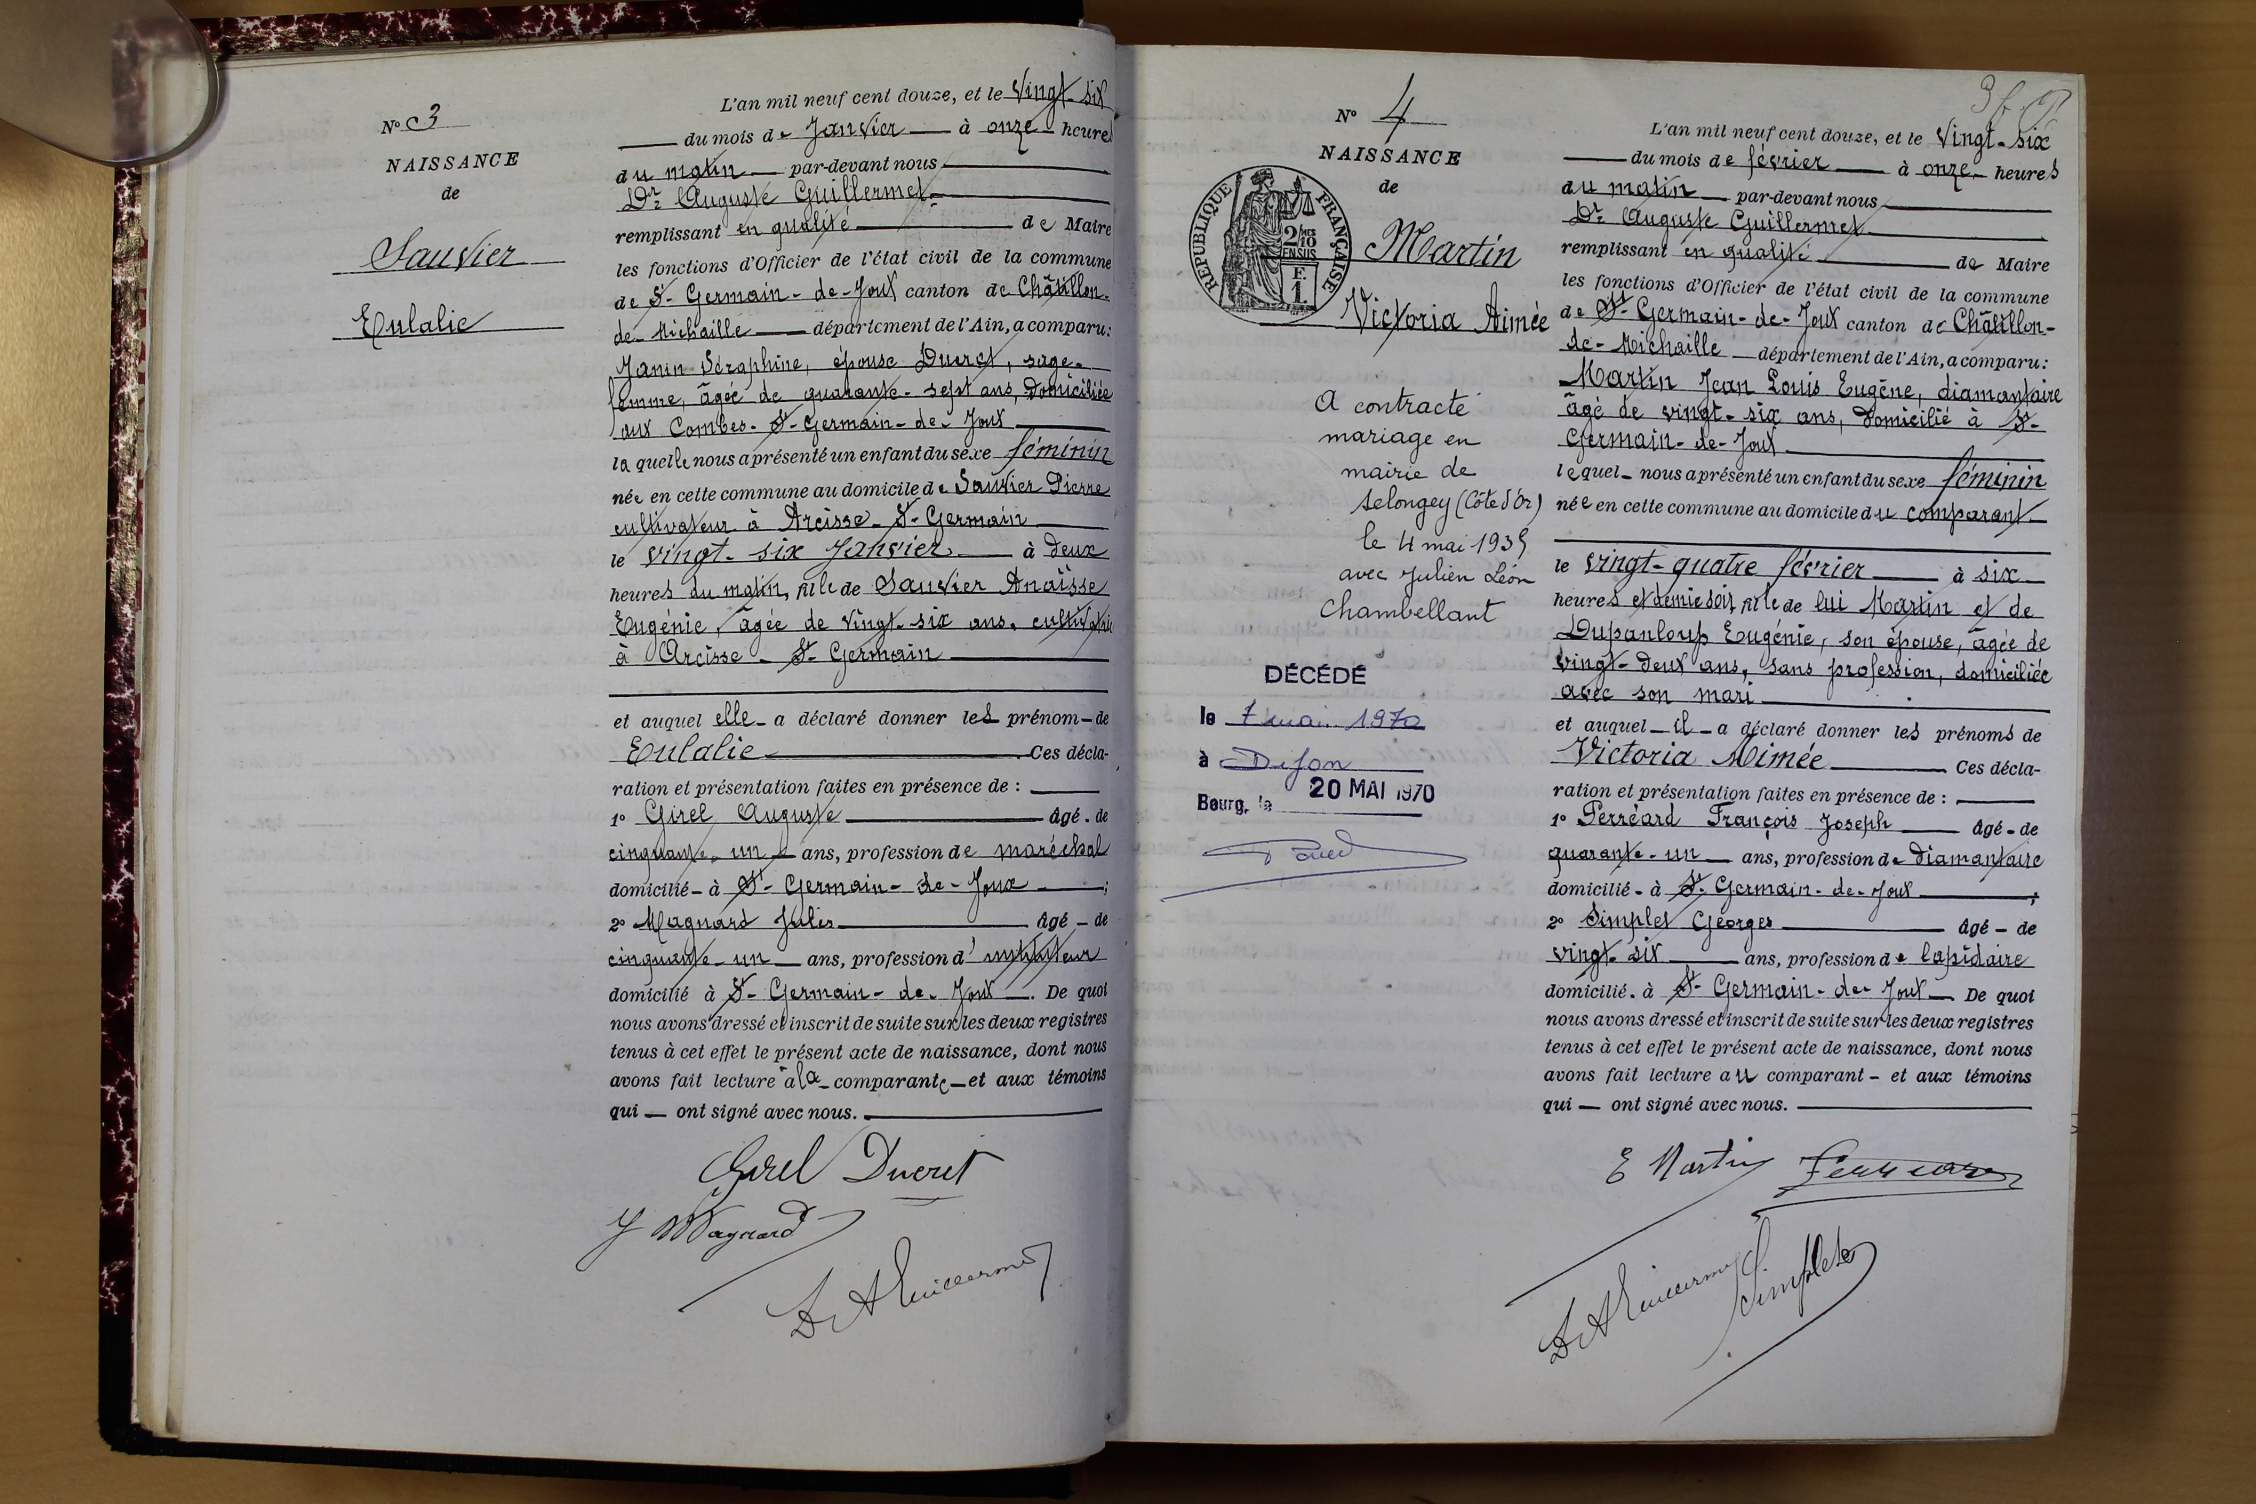 N° 3
NAISSANCE
de
Sauvier
Eulalie
L'an mil neuf cent douze, et le Vingt-six
du mois de Janvier à onze heures
du matin par-devant nous
Dr Auguste Guillermet
remplissant en qualité de Maire
les fonctions d'Officier de l'état civil de la commune
de St-Germain-de-Joux canton de Châtillon-
de-Michaille département de l'Ain, a comparu:
Janin Séraphine, épouse Ducret, sage-
femme, âgée de quarante-sept ans, domiciliée
aux Combes-St-Germain-de-Joux
la quelle nous a présenté un enfant du sexe féminin
née en cette commune au domicile de Sauvier Pierre
cultivateur à Arcisse-St-Germain
le vingt-six Janvier à deux
heures du matin, fille de Sauvier Anaïsse
Eugénie, âgée de vingt-six ans,
à Arcisse-St-Germain
et auquel elle a déclaré donner les prénom de
Eulalie Ces décla-
ration et présentation faites en présence de :
1° Girel Auguste âgé de
cinquante-un ans, profession de maréchal
domicilié à St-Germain-de-Joux ;
2° Magnard Jules âgé de
cinquante-un ans, profession d'instituteur
domicilié à St-Germain-de-Joux. De quoi
nous avons dressé et inscrit de suite sur les deux registres
tenus à cet effet le présent acte de naissance, dont nous
avons fait lecture à la comparante et aux témoins
qui ont signé avec nous.
Girel Ducret
J Magnard
Dr A Guillermet
N° 4
NAISSANCE
de
REPUBLIQUE FRANÇAISE
2/10 EN SUS
F.
1.
Martin
Victoria Aimée
A contracté
mariage en
mairie de
Selongey (Côte d'Or)
le 4 mai 1935
avec Julien Léon
Chambellant
DÉCÉDÉ
le 7 mai 1970
à Dijon
Bourg, le 20 MAI 1970
L'an mil neuf cent douze, et le Vingt-six
du mois de février à onze heures
du matin par-devant nous
Dr Auguste Guillermet
remplissant en qualité de Maire
les fonctions d'Officier de l'état civil de la commune
de St-Germain-de-Joux canton de Châtillon-
de-Michaille département de l'Ain, a comparu:
Martin Jean Louis Eugène, diamantaire
âgé de vingt-six ans, domicilié à St-
Germain-de-Joux
lequel nous a présenté un enfant du sexe féminin
née en cette commune au domicile du comparant
le vingt-quatre février à six
heures et demie soir, fille de lui Martin et de
Dupanloup Eugénie, son épouse, âgée de
vingt-deux ans, sans profession, domiciliée
avec son mari
et auquel il a déclaré donner les prénoms de
Victoria Aimée Ces décla-
ration et présentation faites en présence de :
1° Perréard François Joseph âgé de
quarante-un ans, profession de diamantaire
domicilié à St-Germain-de-Joux ;
2° Simplet Georges âgé de
vingt-six ans, profession de lapidaire
domicilié à St-Germain-de-Joux De quoi
nous avons dressé et inscrit de suite sur les deux registres
tenus à cet effet le présent acte de naissance, dont nous
avons fait lecture au comparant et aux témoins
qui ont signé avec nous.
E Martin Perréard
Dr A Guillermet G. Simplet